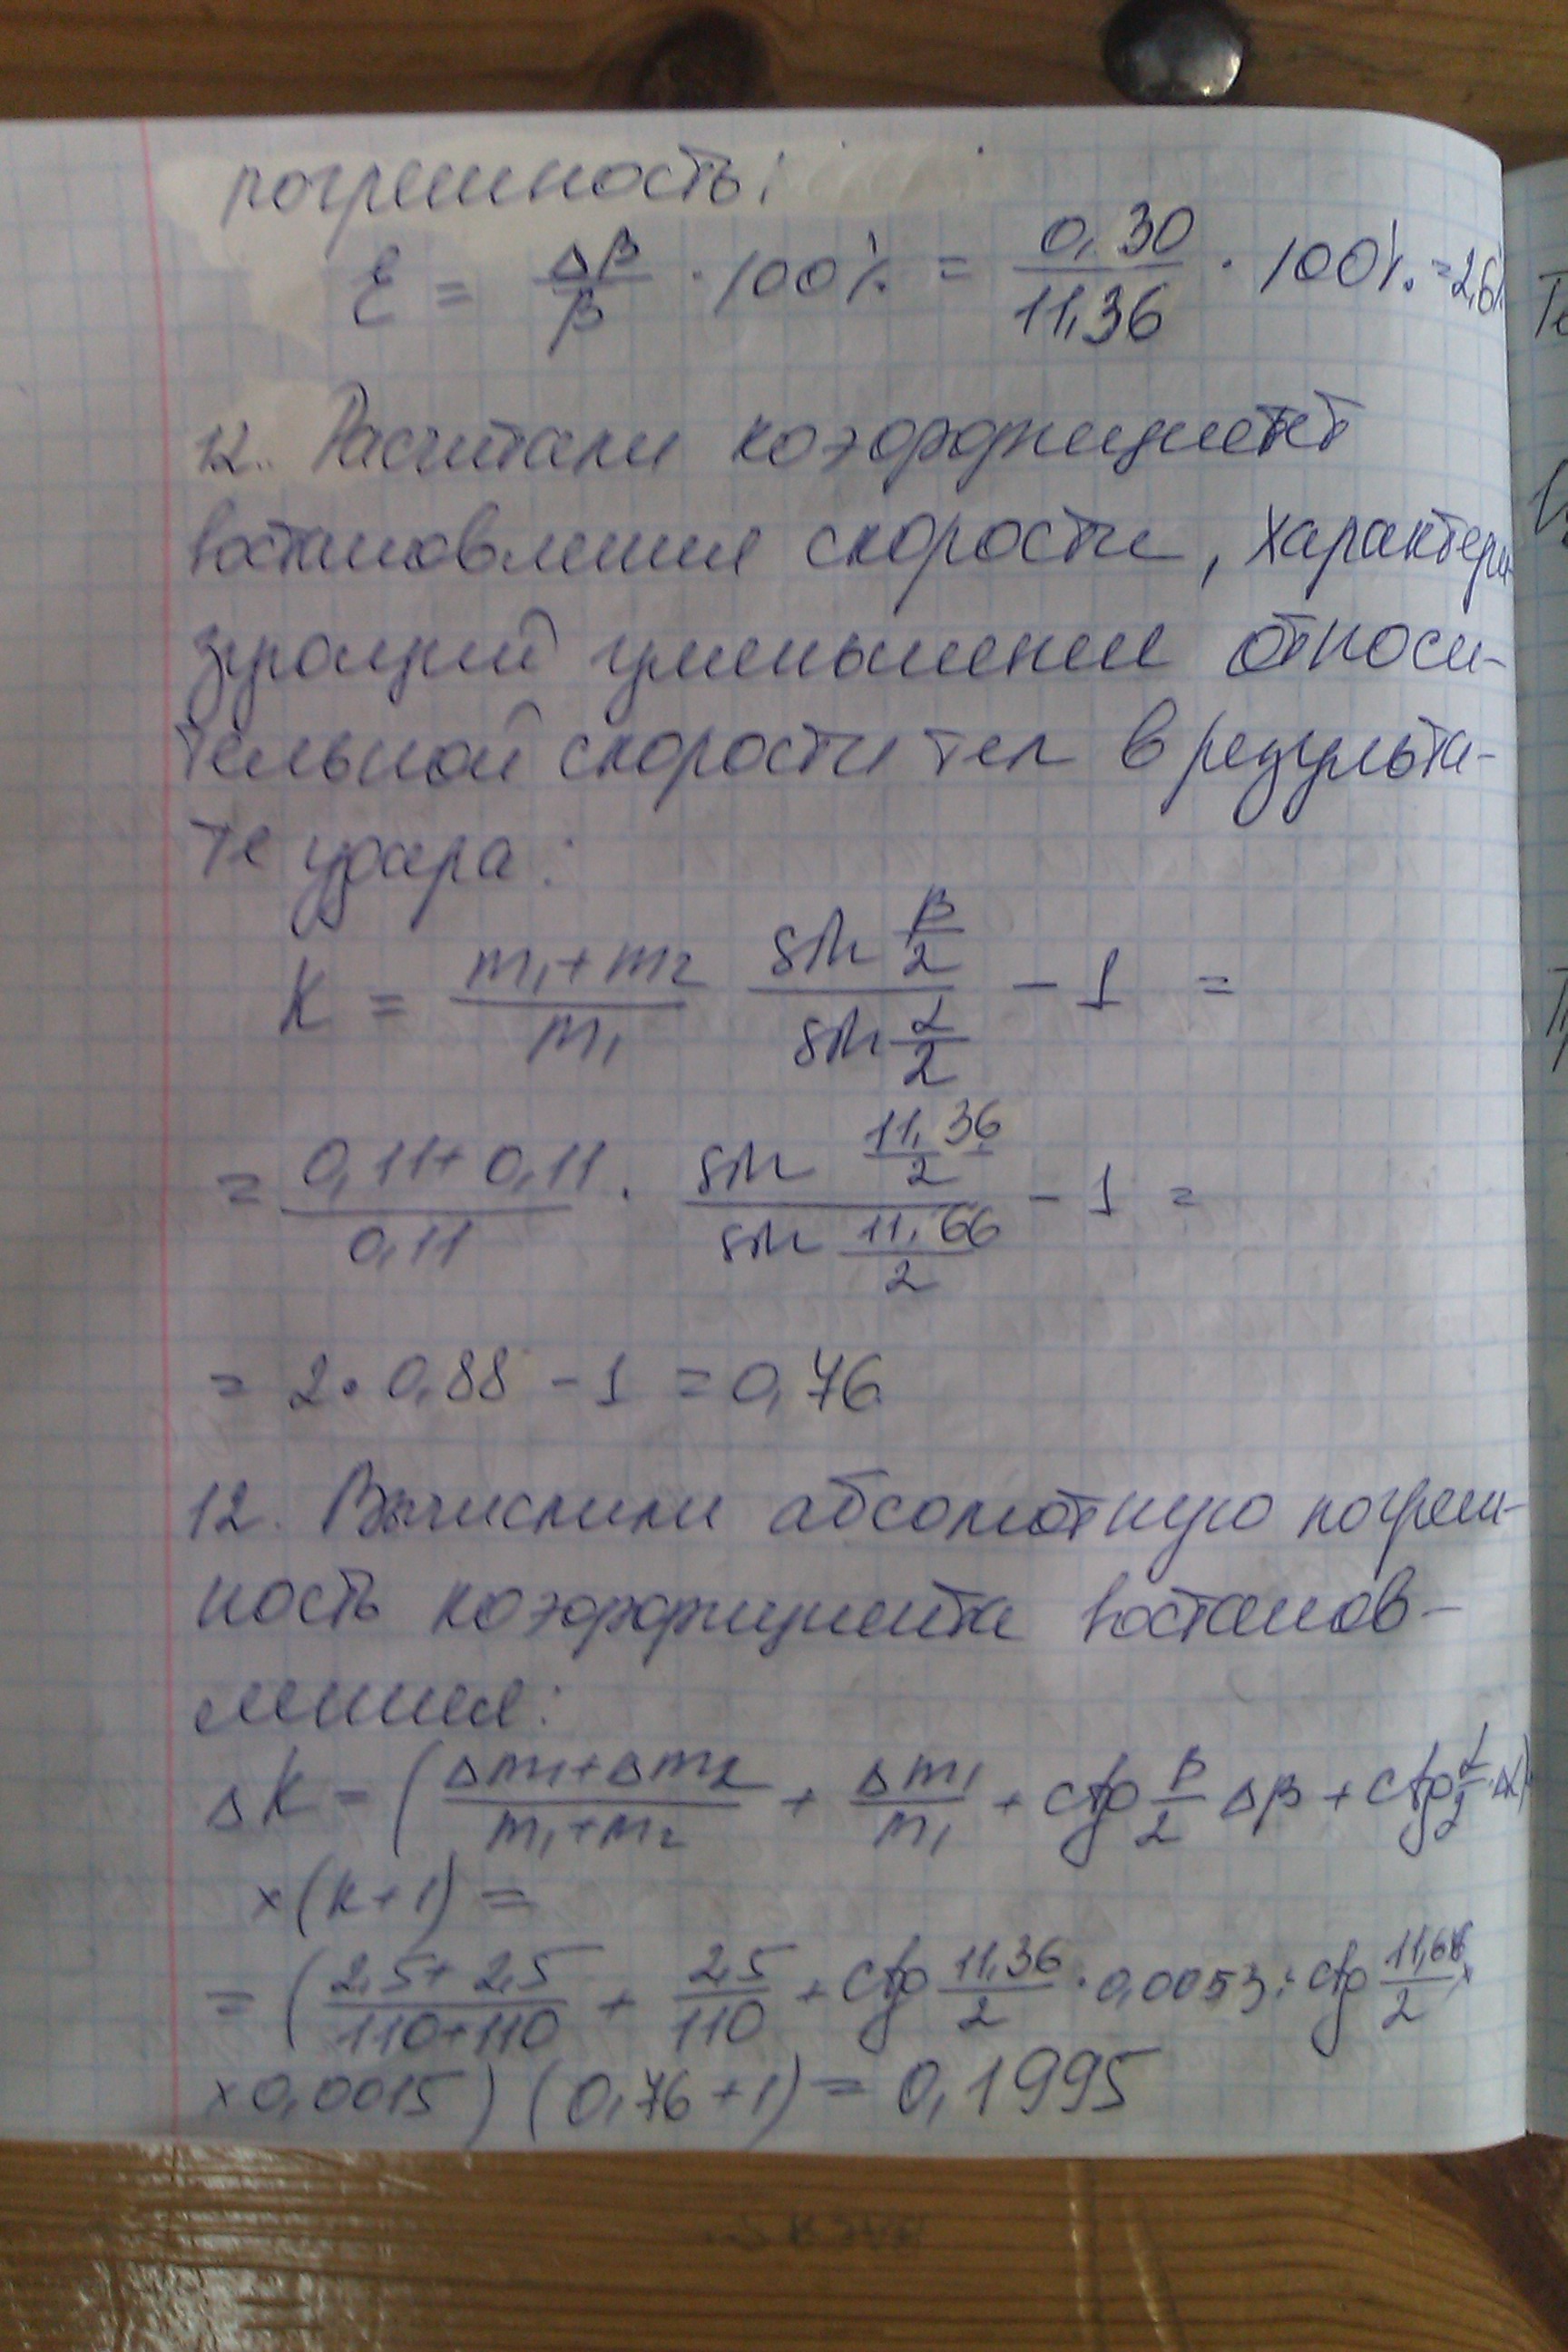 погрешность:
ε = Δβ/β · 100% = 0,30/11,36 · 100% = 2,6%
12. Расчитали коэффициент
востановления скорости, характери-
зующий уменьшение относи-
тельной скорости тел в результа-
те удара:
K = (m₁+m₂)/m₁ (sin β/2)/(sin α/2) - 1 =
= (0,11+0,11)/0,11 · (sin 11,36/2)/(sin 11,66/2) - 1 =
= 2·0,88 - 1 = 0,76
12. Вычислили абсолютную погреш-
ность коэффициента востанов-
ления:
ΔK = ((Δm₁+Δm₂)/(m₁+m₂) + Δm₁/m₁ + ctg β/2 Δβ + ctg α/2 · Δα)
×(k+1) =
= ((2,5+2,5)/(110+110) + 2,5/110 + ctg 11,36/2 · 0,0053 + ctg 11,66/2 ×
×0,0015) (0,76+1) = 0,1995